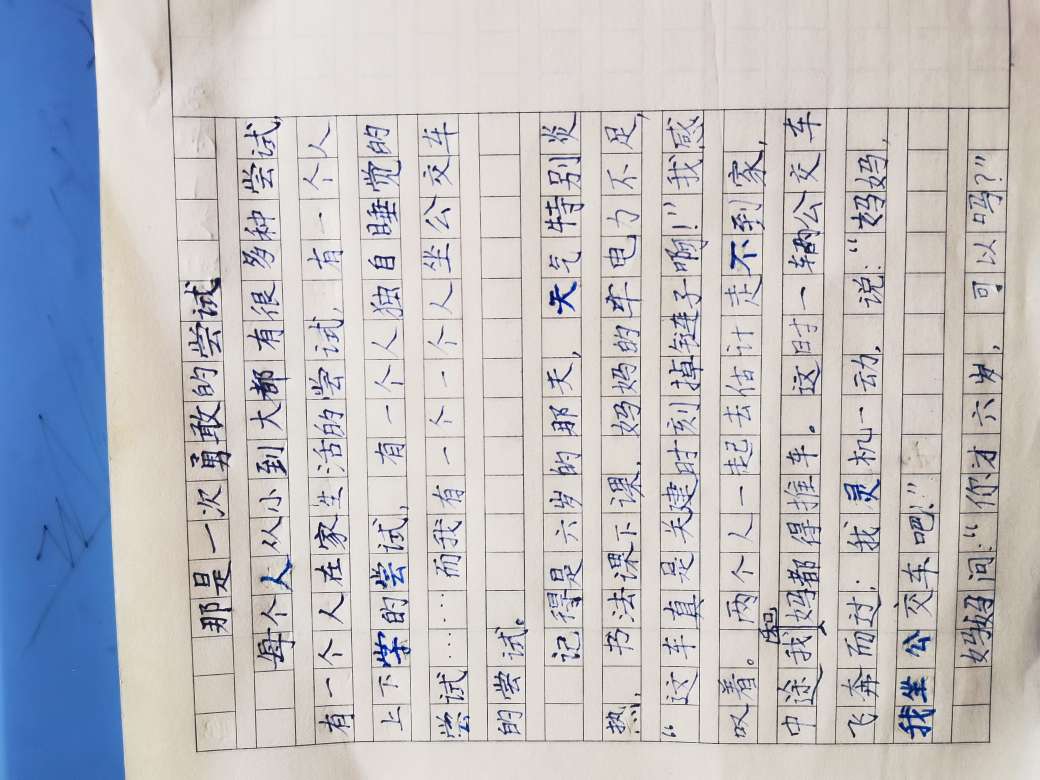 那是一次勇敢的尝试
每个人从小到大都有很多种尝试,
有一个人在家生活的尝试,有一个人
上下学的尝试,有一个人独自睡觉的
尝试……而我有一个一个人坐公交车
的尝试。
记得是六岁的那天,天气特别炎
热,书法课下课,妈妈的车电力不足,
“这车真是关建时刻掉链子啊!”我感
叹着。两个人一起去估计走不到家,
中途我和妈妈都得推车。这时一辆公交车
飞奔而过;我灵机一动,说:“妈妈,
我坐公交车吧!”
妈妈问:“你才六岁,可以吗?”